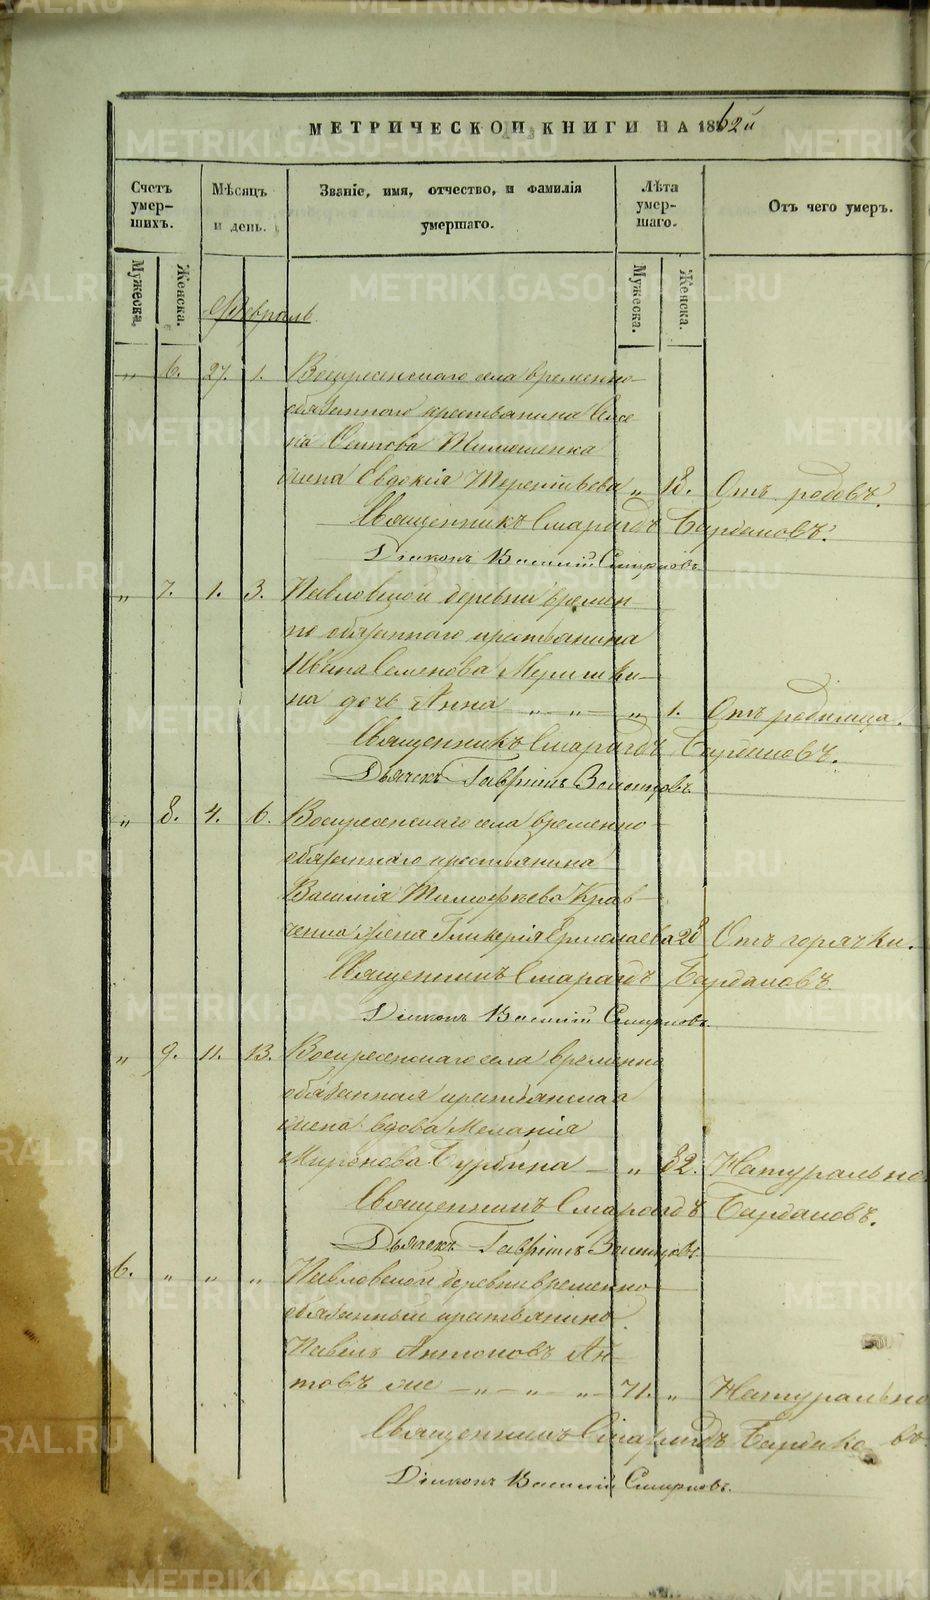 МЕТРИЧЕСКОЙ КНИГИ НА 1862й
Счетъ умер-шихъ. Мѣсяцъ и день. Званіе, имя, отчество, и фамилія умершаго. Лѣта умер-шаго. Отъ чего умеръ.
Мужеска. Женска. Мужеска. Женска.
Февраль
„ 6. 27. 1. Воскресенскаго села временно-
обязаннаго крестьянина
Тимошенка
жена Евдокія Терентьева „ 18. Отъ родовъ.
Священникъ Смарагдъ
Діаконъ Василій Смирновъ
„ 7. 1. 3. Павловской деревни времен
но обязаннаго крестьянина
Ивана Семенова
на дочь Анна „ „ „ 1. Отъ родимца.
Священникъ Смарагдъ
Дьячекъ Гавріилъ
„ 8. 4. 6. Воскресенскаго села временно
обязаннаго крестьянина
Василія Тимофѣева Крав
ченка жена Гликерія Ермолаева 28 Отъ горячки.
Священникъ Смарагдъ
Діаконъ Василій Смирновъ
„ 9. 11. 13. Воскресенскаго села временно
обязанная крестьянская
жена вдова Меланія
Миронова Бурбина „ 82. Натурально
Священникъ Смарагдъ
Дьячекъ Гавріилъ
6. „ „ „ Павловской деревни временно
обязанный крестьянинъ
Павелъ Антоновъ
„ „ „ 71. „ Натурально
Священникъ Смарагдъ
Діаконъ Василій Смирновъ.
METRIKI.GASO-URAL.RU